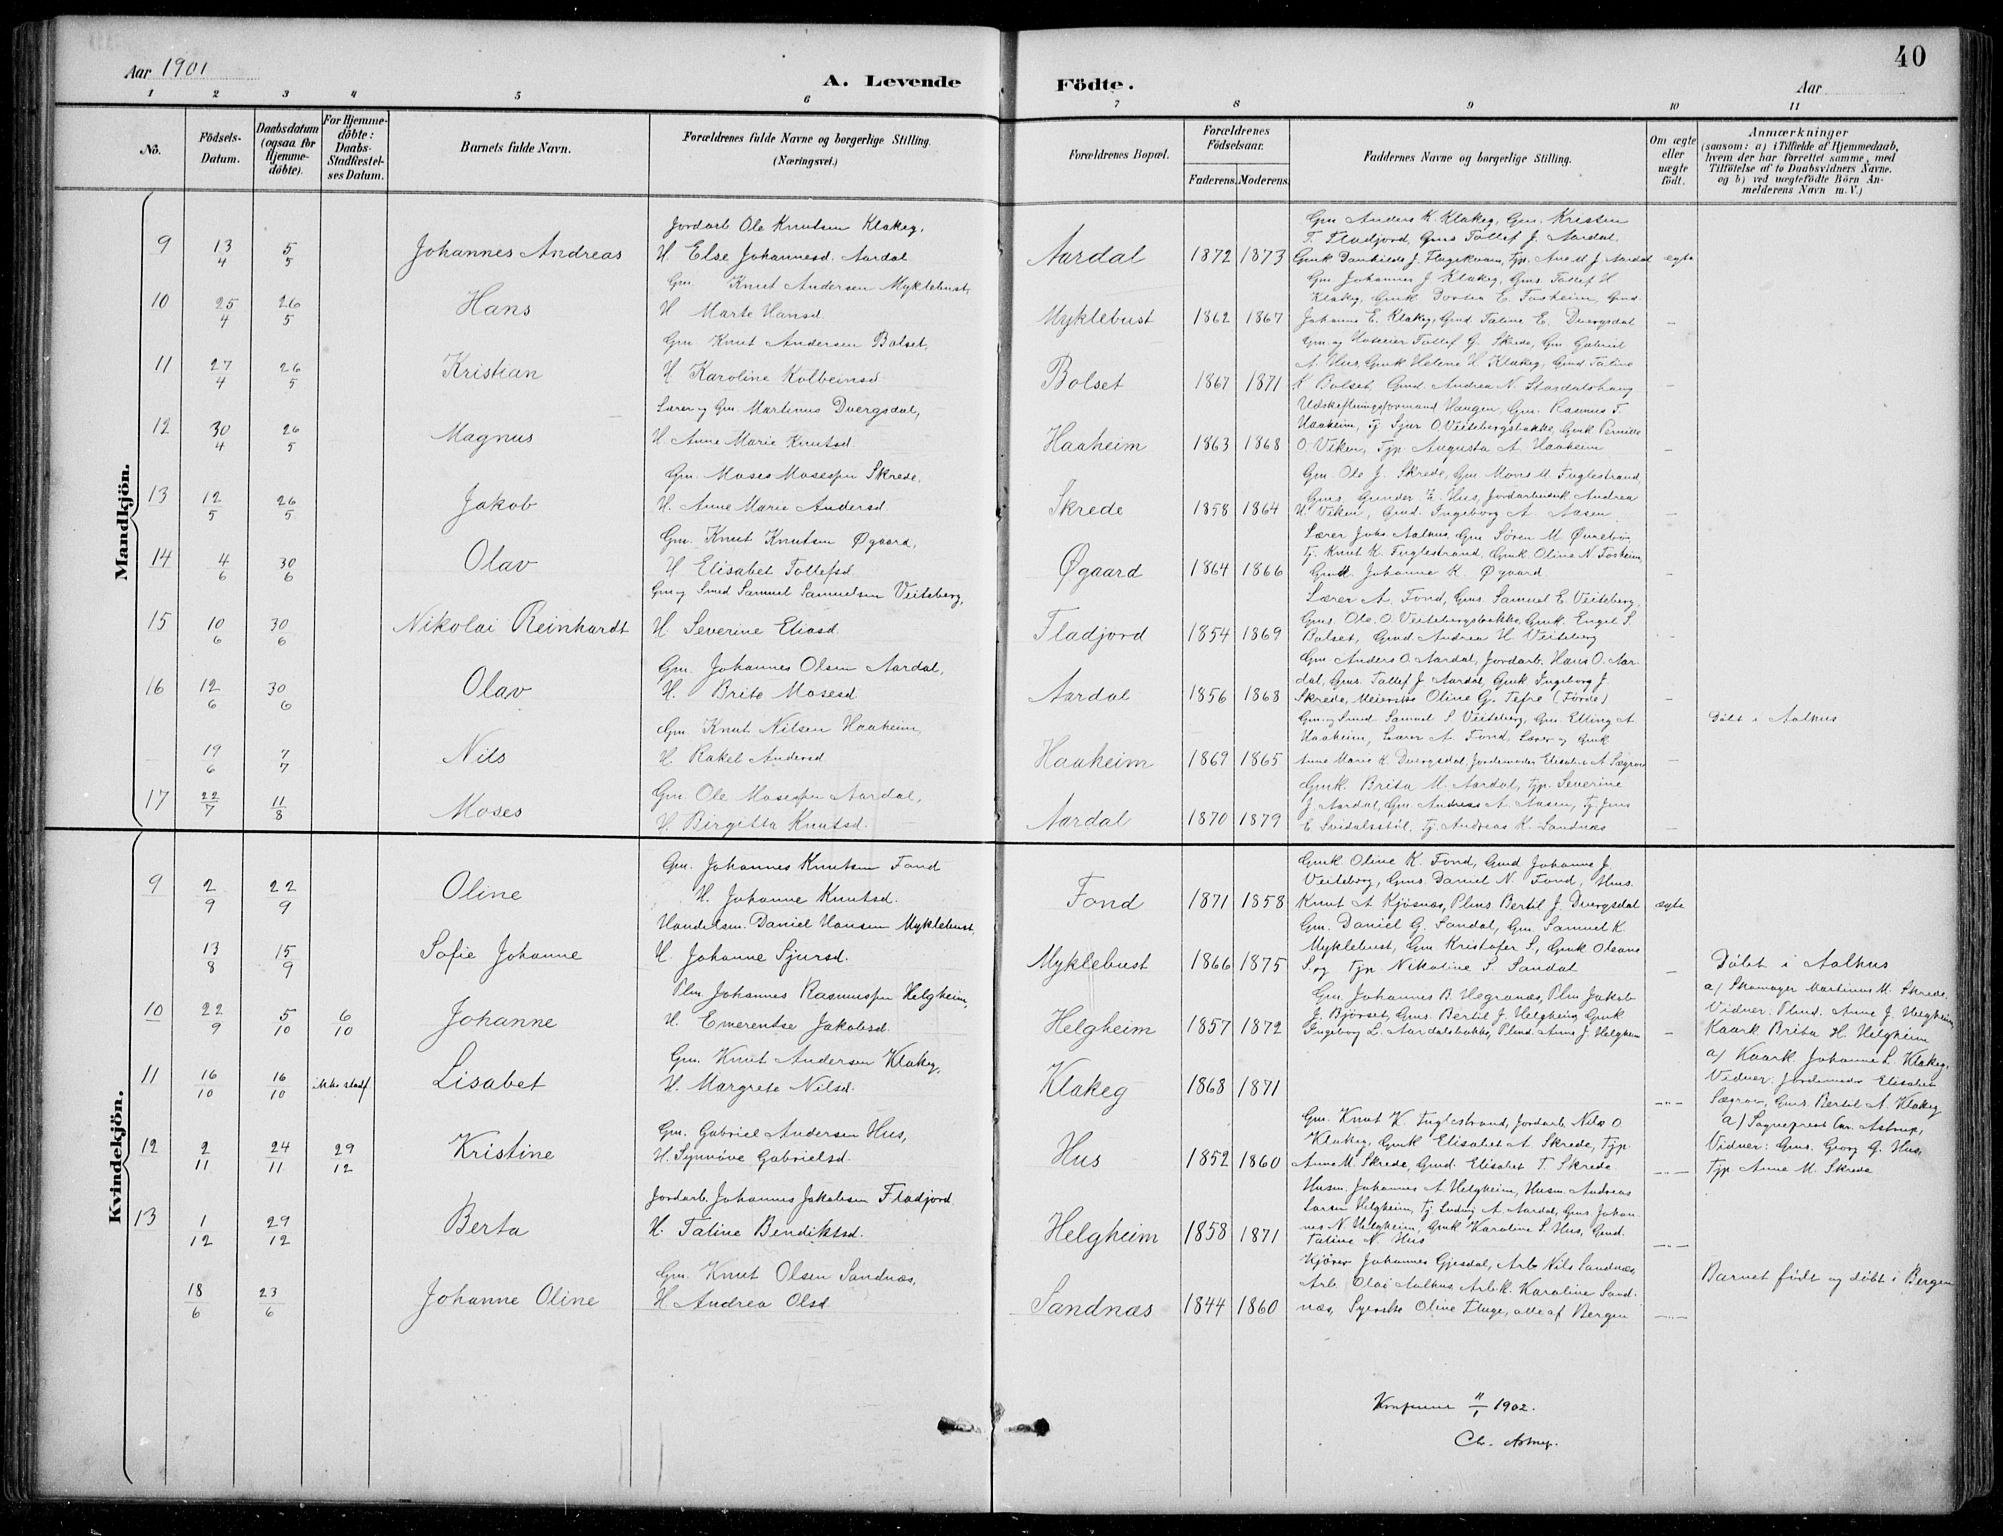 Aar 1901
A. Levende
Födte.
Aar
40
1 2 3 4 5 6 7 8 9 10 11
No.
Födsels-Datum.
Daabsdatum (ogsaa for Hjemmedöbte).
For Hjemmedöbte: Daabs-Stadfæstelses Datum.
Barnets fulde Navn.
Forældrenes fulde Navne og borgerlige Stilling. (Næringsvei.)
Forældrenes Bopæl.
Forældrenes Födselsaar.
Faderens. Moderens.
Faddernes Navne og borgerlige Stilling.
Om ægte eller uægte födt.
Anmærkninger
(saasom: a) i Tilfælde af Hjemmedaab,
hvem der har forrettet samme, med
Tilföielse af to Daabsvidners Navne,
og b) ved uægtefödte Börn An-
melderens Navn m.V.)
Mandkjön.
9 13/4 5/5 Johannes Andreas
Jordarb Ole Knutsen Klakeg,
H. Else Johannesd. Aardal
Aardal 1872 1873
Gm Anders K. Klakeg, Gm. Kristen
T. Fladjord, Gms Tollef J. Aardal
Gmk Danhilde J. Flugekvam, Tjp. Ane M. J. Aardal ægte
10 25/4 26/5 Hans
Gm. Knut Andersen Myklebust,
H. Marte Hansd.
Myklebust 1862 1867
Gm Johannes J Klakeg, Gms. Tollef H
Klakeg, Gmk Dortea E. Fosheim, Gmd.
Johanne E. Klakeg, Gmd Taline E. Dvergsdal –
11 27/4 26/5 Kristian
Gm Knut Andersen Bolset,
H Karoline Kolbeinsd
Bolset 1867 1871
Gm. og Tollef G. Skrede, Gm Gabriel
A. Hus, Gmk Helene H. Klakeg, Gmd Taline
K Bolset, Gmd. Andrea N. Stardalshaug –
12 30/4 26/5 Magnus
Lærer og Gm. Martinus Dvergsdal,
H. Anne Marie Knutsd.
Haaheim 1863 1868
Udskiftningsformand Haugen, Gm. Rasmus T.
Haaheim, Tj Sjur O. Veitebergsbakke, Gmk Pernille
O. Viken, Tjp Augusta A. Haaheim –
13 12/5 26/5 Jakob
Gm. Moses Mosespn Skrede,
H. Anne Marie Andersd.
Skrede 1858 1864
Gm. Ole J. Skrede, Gm Mons M. Fuglestrand,
Gms, Gunder K. Hus, Andrea
H. Viken, Gmd. Ingeborg A. Aasen –
14 4/6 30/6 Olav
Gm. Knut Knutsen Øgaard,
H. Elisabet Tollefsd.
Øgaard 1864 1866
Lærer Johs. Aalhus, Gm Sören M. Øvrebö,
Tj. Knut K. Fuglestrand, Gmk. Oline N. Fosheim,
Gmd. Johanne K. Øgaard –
15 10/6 30/6 Nikolai Reinhardt
Gm og Smed Samuel Samuelsen Veiteberg,
H Severine Eliasd.
Fladjord 1854 1869
Lærer A. Fond, Gms. Samuel E. Veiteberg,
Gms. Ole O. Veitebergsbakke, Gmk. Engel S
Bolset, Gmd Andrea H Veiteberg –
16 12/6 30/6 Olav
Gm. Johannes Olsen Aardal,
H. Brite Mosesd
Aardal 1856 1868
Gm Anders O. Aardal, Jordarb. Hans O. Aar-
dal, Gms. Tollef J Aardal, Gmk Ingeborg J.
Skrede, Meierske Oline G. Tefre (Førde) –
19/6 7/7 Nils
Gm Knut Nilsen Haaheim,
H. Rakel Andersd
Haaheim 1869 1865
Gm. og Smed Samuel S. Veiteberg, Gm. Elling A.
Haaheim, Lærer A Fond, Lærer og Gmk
Anne Marie K. Dvergsdal, Jordemoder Elisabet A Sægrov –
Döbt i Aalhus
17 22/7 11/8 Moses
Gm. Ole Mosespn Aardal,
H. Birgitta Knutsd.
Aardal 1870 1879
Gmk. Brita M. Aardal, Tjp. Severine
J. Aardal, Gm Andreas A. Aasen, Tj Jens
E. Svidalsstöl, Tj Andreas K. Sandnæs –
Kvindekjön.
9 2/9 22/9 Oline
Gm. Johannes Knutsen Fond
H. Johanne Knutsd.
Fond 1871 1858
Gmk Oline K. Fond, Gmd Johanne J.
Veiteberg, Gms. Daniel N. Fond, Hus.
Knut A Kjøsnæs, Plms. Bertil J. Dvergsdal ægte
13/8 15/9 Sofie Johanne
Handelsm. Daniel Hansen Myklebust,
H. Johanne Sjursd.
Myklebust 1866 1875
Gm. Daniel G. Sandal, Gm. Samuel K.
Myklebust, Gm Kristofer S., Gmk Olsane
S. og Tjp Nikoline S. Sandal –
Döbt i Aalhus
10 22/9 5/10 6/10 Johanne
Plm Johannes Rasmuspn Helgheim,
H. Emerentse Jakobsd.
Helgheim 1857 1872
Gm. Johannes B. Hegranæs, Plm Jakob
J. Bjørset, Gms. Bertil J. Helgheim, Gmk
Ingeborg L. Aardalsbakke, Plmd. Anne J. Helgheim –
a) Skomager Martinus M. Skrede,
Vidner: Plmd. Anne J. Helgheim,
Kaark Brita H. Helgheim
11 16/10 16/10 ikke stadf Lisabet
Gm. Knut Andersen Klakeg,
H. Margrete Nilsd.
Klakeg 1868 1871 –
a) Kaark. Johanne L. Klakeg,
Vidner: Jordemoder Elisabet
Sægrov, Gms. Bertil A. Klakeg
12 2/11 24/11 29/12 Kristine
Gm. Gabriel Andersen Hus,
H. Synnöve Gabrielsd.
Hus 1852 1860
Gm. Knut K Fuglestrand, Jordarb. Nils O
Klakeg, Gmk Elisabet A. Skrede, Tjp
Anne M. Skrede, Gmd. Elisabet T. Skrede –
a) Sognepræst Chr. Astrup,
Vidner: Gms. Georg G. Hus,
Tjp Anne M. Skrede
13 1/12 29/12 Berta
Jordarb. Johannes Jakobsen Fladjord
H. Taline Bendiktsd.
Helgheim 1858 1871
Husm. Johannes A. Helgheim, Husm. Andreas
Larsen Helgheim, Tj Ludvig A. Aardal, Gms. Johan-
nes N. Helgheim, Gmk Karoline S. Hus, Gmd.
Taline N. Hus –
18/6 23/6 Johanne Oline
Gm. Knut Olsen Sandnæs,
H Andrea Olsd
Sandnæs 1844 1860
Kjörer Johannes Gjesdal, Arb. Nils Sandnæs,
Arb. Olai Aalhus, Arb.k. Karoline Sand-
næs, Syerske Oline Fluge, alle af Bergen –
Barnet födt og döbt i Bergen
11/1 1902.
Ch. Astrup.